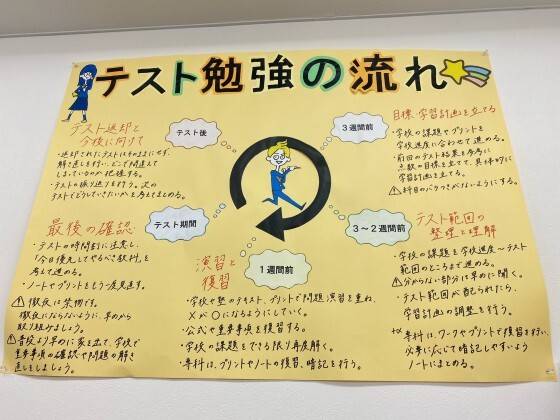 テスト勉強の流れ
3週間前
目標・学習計画を立てる
・学校の課題でプリントを
学校進度に合わせて進める。
・前回のテスト結果を参考に
点数の目標を立てて、具体的に
学習計画を立てる。
⚠科目のバラつきがないようにする。
3〜2週間前
テスト範囲の
整理と理解
・学校の課題を学校進度〜テスト
範囲のところまで進める。
⚠分からない部分は早めに聞く。
・テスト範囲が配られたら、
学習計画の調整を行う。
専科は、ワークやプリントで復習を行い、
必要に応じて暗記しやすいよう
ノートにまとめる。
1週間前
演習と
復習
・学校や塾のテキスト、プリントで問題演習を重ね、
×が○になるようにしていく。
・公式や重要事項を復習する。
・学校の課題をできる限り再度解く。
・専科は、プリントやノートの復習、暗記を行う。
テスト期間
最後の確認
・テストの時間割に注意し、
「今日優先してやるべき教科」を
考えて進める。
・ノートやプリントをもう一度見直す。
⚠徹夜は禁物です。
徹夜にならないように、早めから
取り組みましょう。
⚠普段より早めに家を出て、学校で
重要事項の確認や問題の解き
直しをしましょう。
テスト後
テスト返却と
今後に向けて
・返却されたテストはそのままにせず、
解き直しを行い、どこで間違えて
しまっているのか把握する。
・テストの振り返りを行う。次の
テストでどうしていきたいかを考えてまとめる。